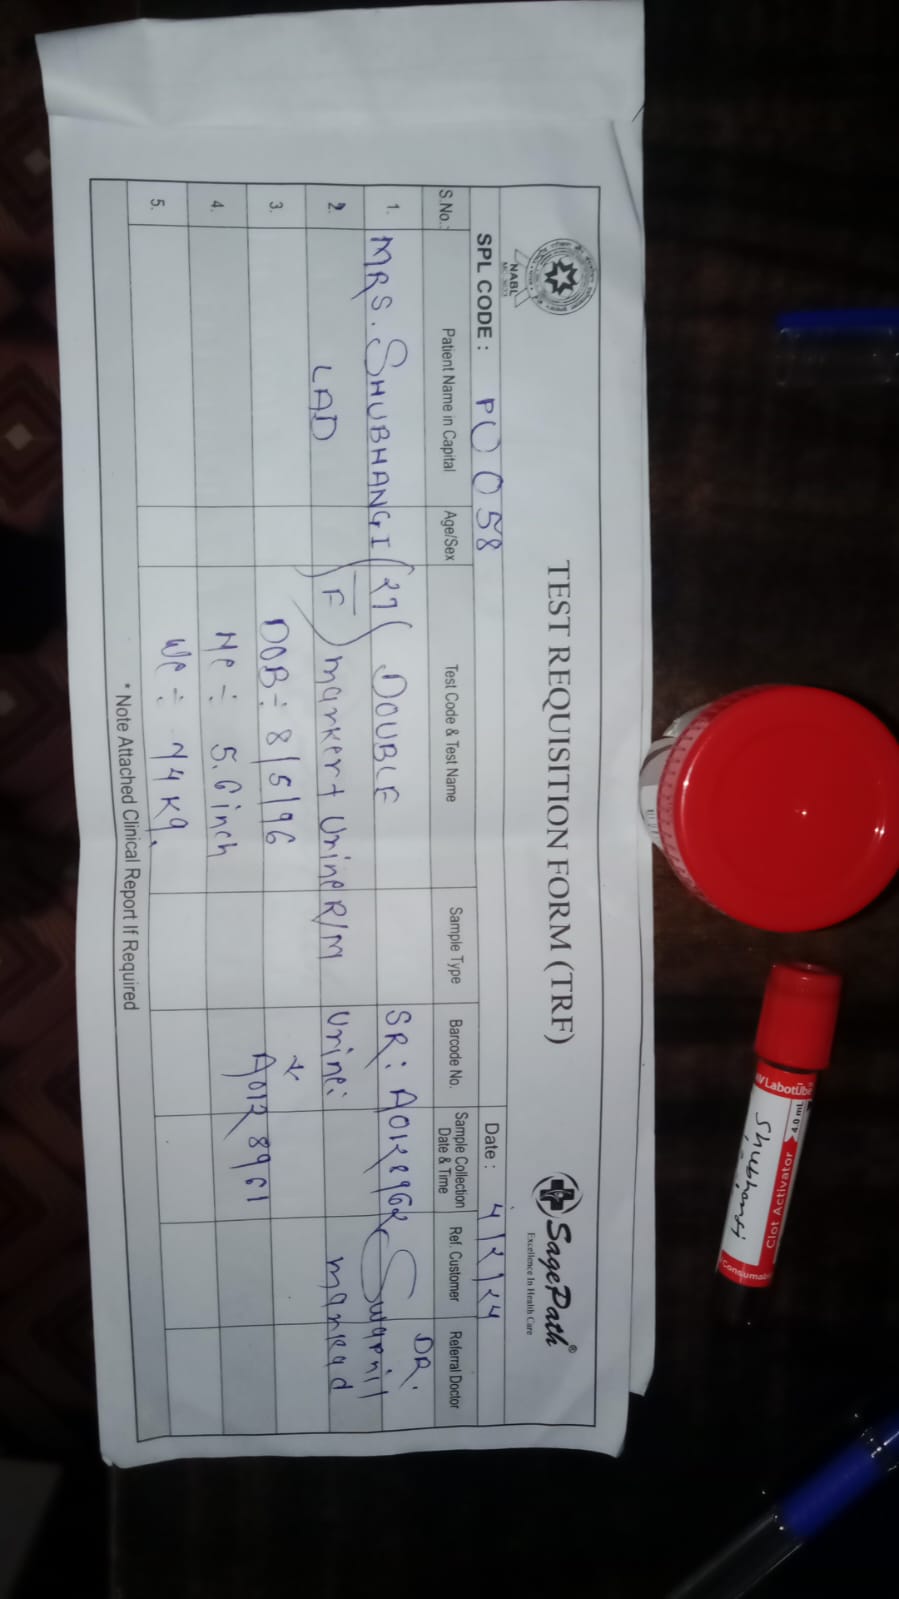 NABL
TEST REQUISITION FORM (TRF)
SagePath®
Excellence In Health Care
SPL CODE : PU 058
Date : 4/2/24
S.No.: Patient Name in Capital Age/Sex Test Code & Test Name Sample Type Barcode No. Sample Collection Date & Time Ref. Customer Referral Doctor
DR.
1. MRS. SHUBHANGI (27( DOUBLE SR: Swapnil
2. LAD F) marker + Urine R/M Urine: mankad
3. DOB- 8/5/96
4. He:- 5.6 inch A0128961
5. We:- 74 kg.
* Note Attached Clinical Report If Required
4.0 ML
Clot Activator